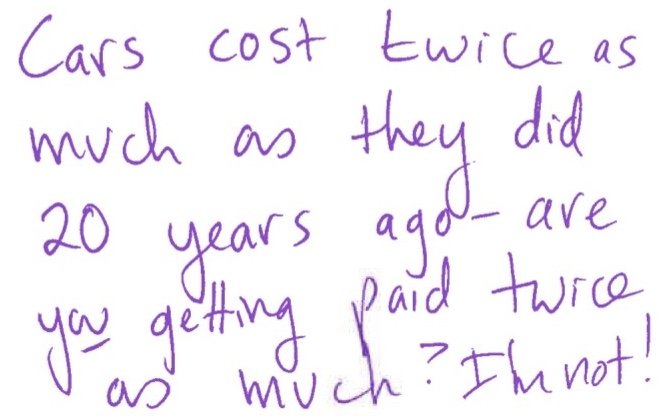 Cars cost twice as
much as they did
20 years ago - are
you getting paid twice
as much? I'm not!